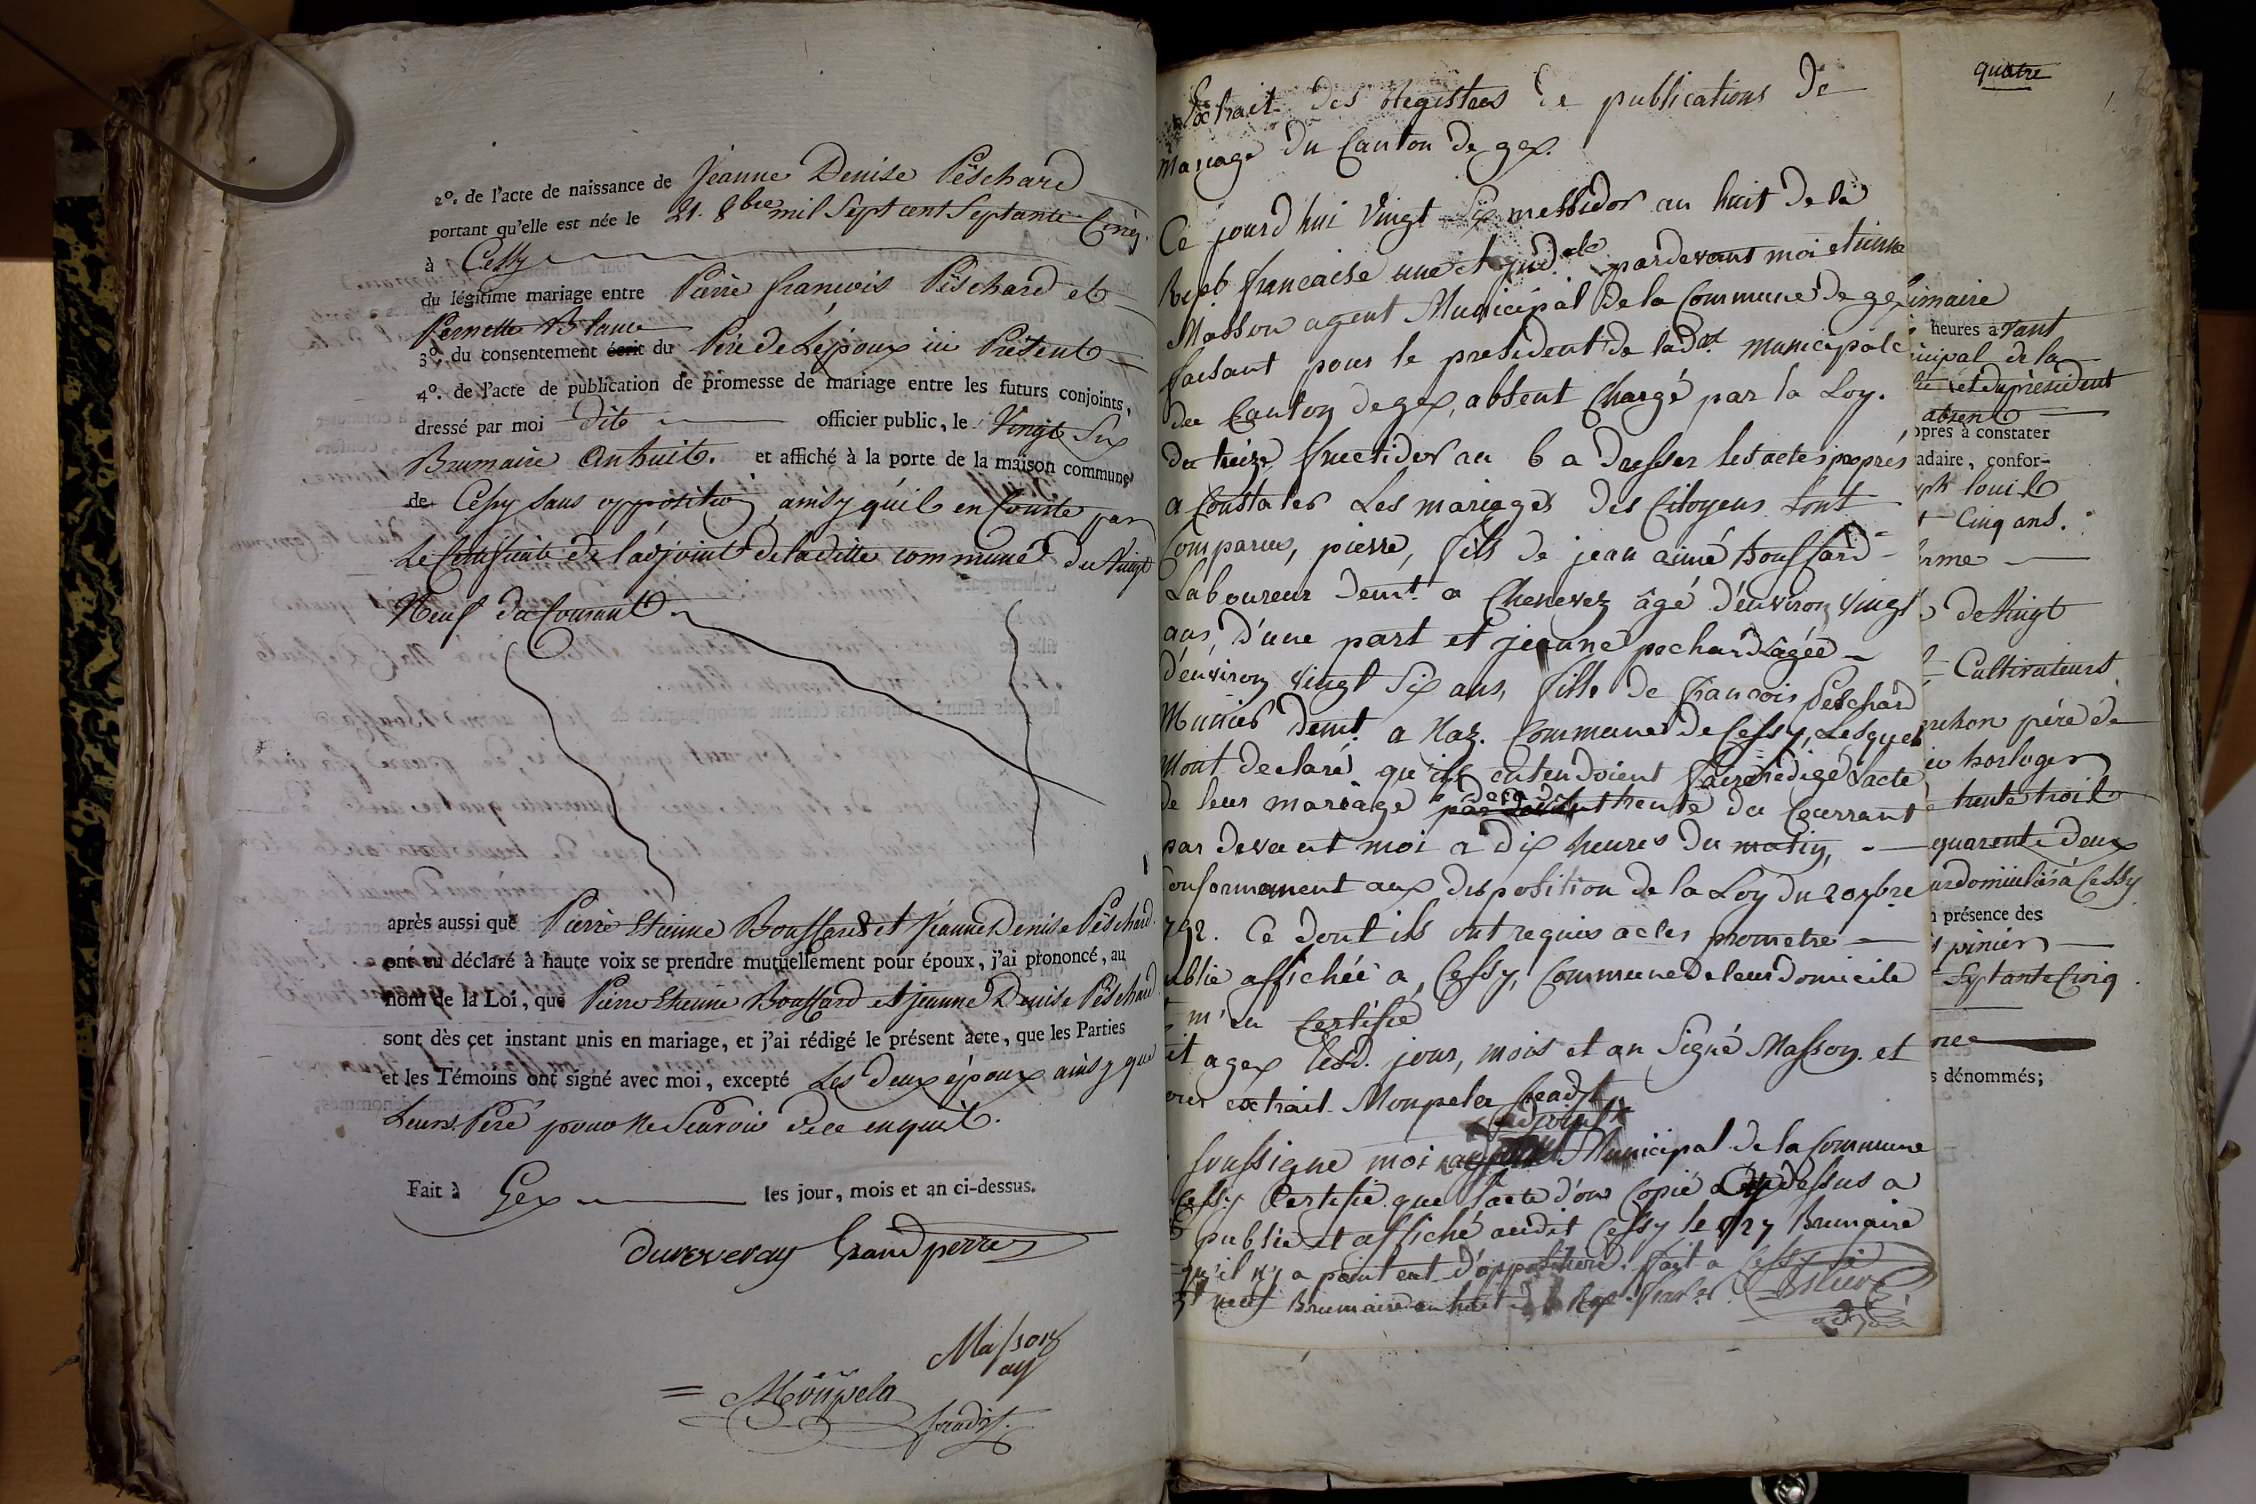 2º. de l'acte de naissance de Jeanne Denise Pêschard
portant qu'elle est née le 21. 8bre mil Sept cent Septante Cinq.
à Cessy
du légitime mariage entre Pierre françois Pêschard et
Pernette Blanc
3º. du consentement écrit du Père de L'époux ici Présent
4º. de l'acte de publication de promesse de mariage entre les futurs conjoints,
dressé par moi dit officier public, le Vingt Six
Brumaire an huit. et affiché à la porte de la maison commune
de Cessy sans opposition ainsy qu'il en Conste par
Le Certificate de l'adjoint de la ditte commune du Vingt
Neuf du Courant
après aussi que Pierre Etienne Bouffard et Jeanne Denise Pêschard
ont eu déclaré à haute voix se prendre mutuellement pour époux, j'ai prononcé, au
nom de la Loi, que Pierre Etienne Bouffard et jeanne Denise Pêschard
sont dès cet instant unis en mariage, et j'ai rédigé le présent acte, que les Parties
et les Témoins ont signé avec moi, excepté Les deux époux ainsy que
Leurs Pere pour ne Scavoir de ce enquit.
Fait à Gex les jour, mois et an ci-dessus.
dureveray Grandperre
Masson
ag
Moupela
Extrait des Registres de publications de
mariage du Canton de gex.
Ce jourd'hui vingt Six messidor an huit de la
Rep francaise une et jnd.ble pardevant moi etienne
Masson agent Municipal de la Commune de gex
faisant pour le president de lad.on municipale
du Canton de gex, absent Chargé par la Loy.
du treize fructidor an 6 a dresser les actes propres
a constater Les mariages des Citoyens Sont
Comparus, pierre, fils de jean aimé bouffard
Laboureur demt. a Chenevez âgé d'environ vingt
ans, d'une part et jeanne pechard agée
d'environ vingt Six ans, fille de francois Peschard
Munier demt. a Naz. Commune de Cessy, Lesquels
Mont declaré qu'ils entendoient faire redigé l'acte
de leur mariage trente du Courrant
par devant moi a dix heures du matin,
Conformement aux disposition de la Loy du 20 7bre
792. Ce dont ils ont requis acte promettre
ublie affichée a Cessy, Commune de leur domicile
m'en Certifié
it a gex lesd. jour, mois et an Signé Masson. et
our extrait Moupela
adjoint
Soussigne moi Municipal de la Commune
Cessy Certifie que l'acte d'ou Copié Cy dessus a
publié et affiché audit Cessy le 27 Brumaire
qu'il n'y a point eut d'opposition. fait a Cessy
neuf Brumaire an huit
quatre
imaire
heures avant
icipal de la
et du président
absent
opres à constater
adaire, confor-
louis
Cinq ans.
de Vingt
Cultivateurs
père de
horloger
trente trois
quarente deux
domicilié à Cessy
présence des
Septante Cinq
s dénommés;